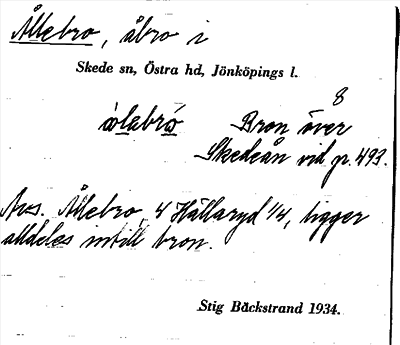 Ållebro, åbro i
Skede sn, Östra hd, Jönköpings l.
8
ɷ̀lebrɷ̀ Bron över
Skedeån vid pr. 493.
Avs. Ållebro, 4 Hällaryd 1/4, ligger
alldeles intill bron.
Stig Bäckstrand 1934.